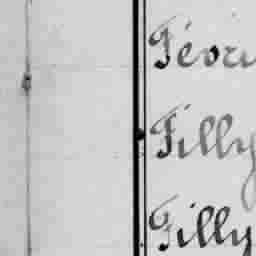 Févri
Filly
Filly